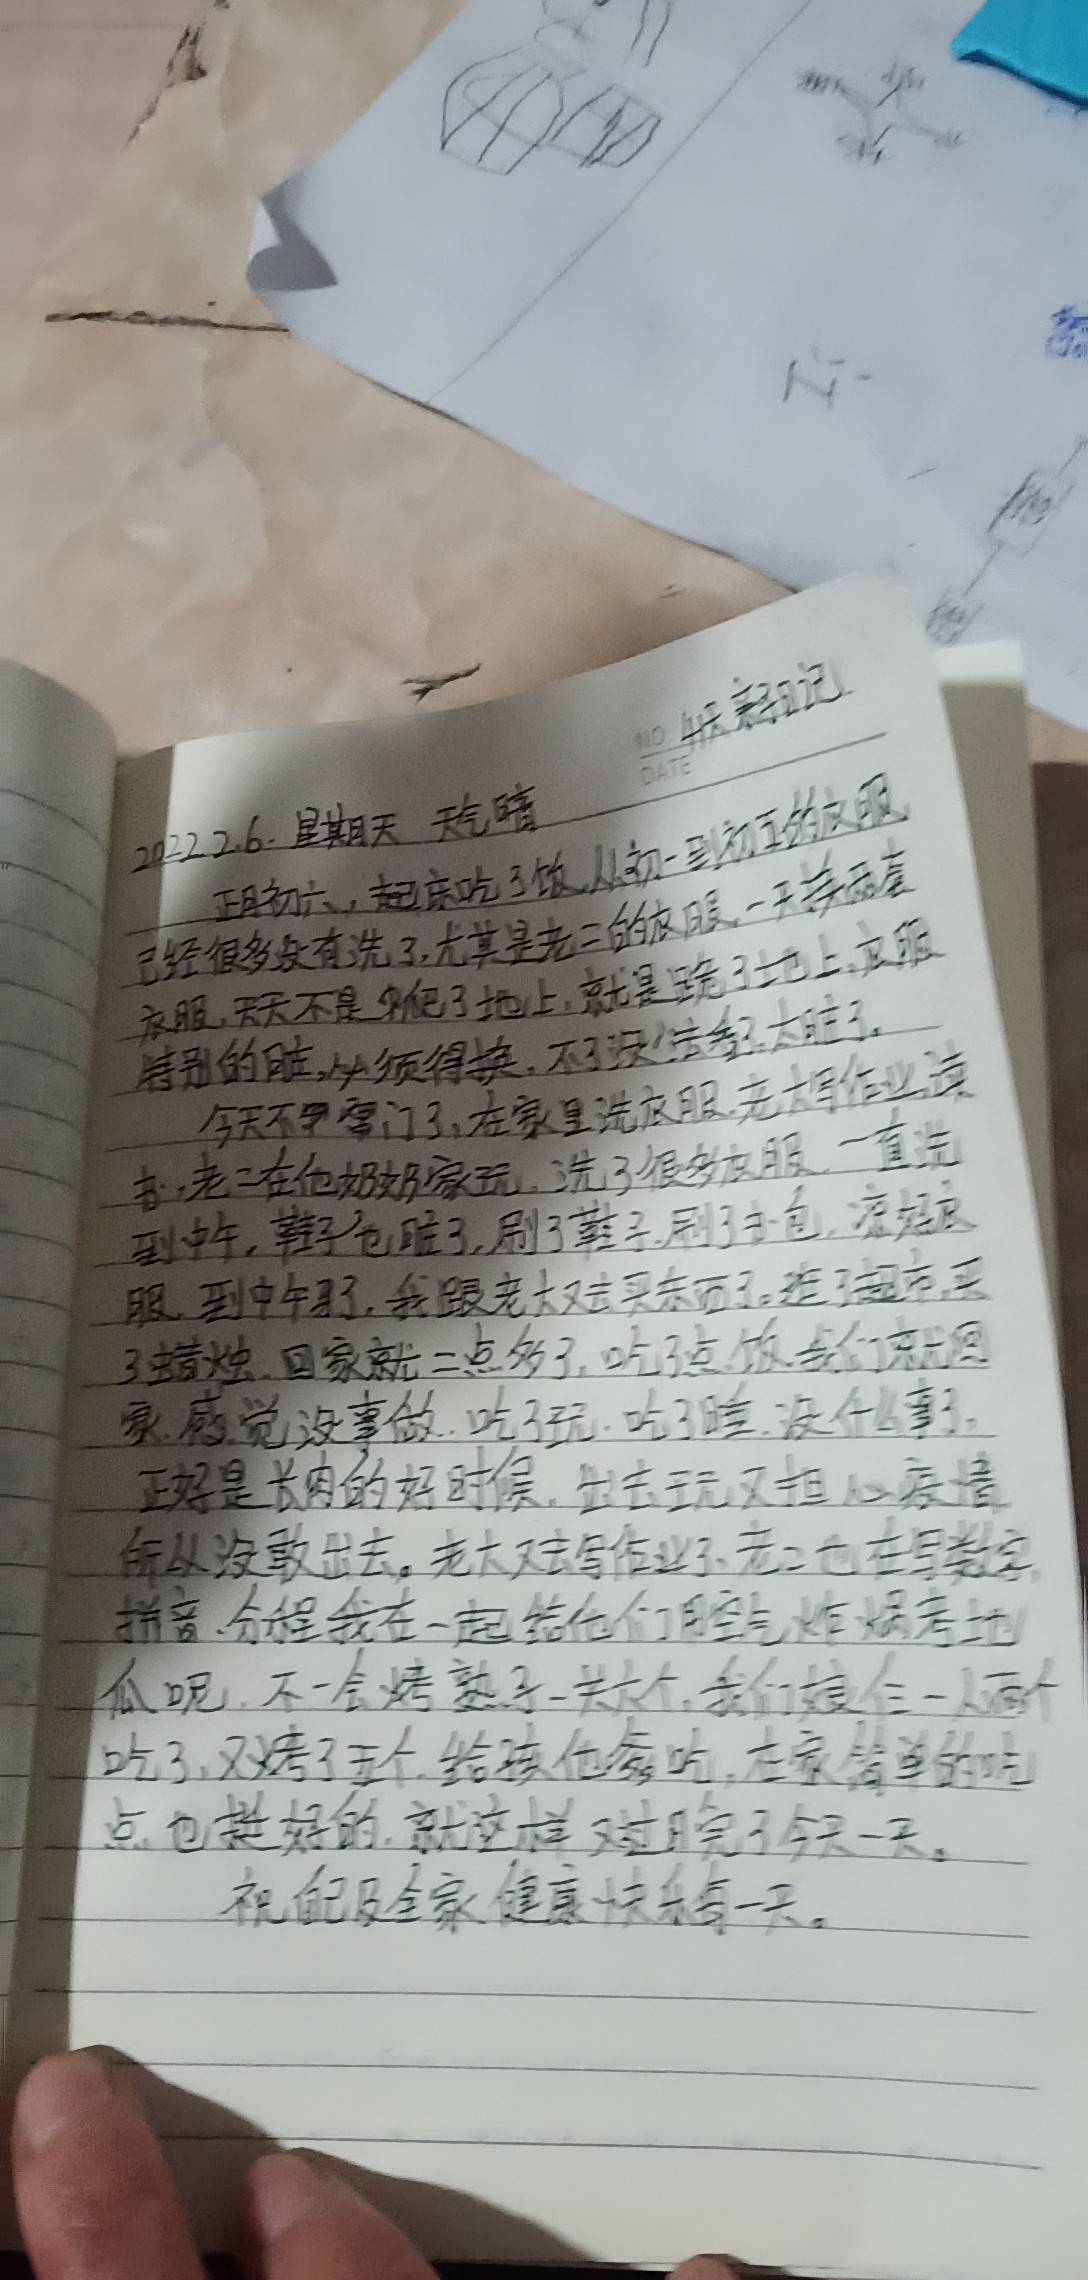 NO 4天亲子日记
DATE
2022.2.6. 星期天 天气晴
正月初六,起床吃了饭,从初一到初五的衣服
已经很多没有洗了,尤其是老二的衣服,一天换两套
衣服,天天不是爬了地上,就是跪了地上,衣服
特别的脏,必须得换,不了没法看了,太脏了。
今天不串门了,在家里洗衣服,老大写作业,读
书,老二在他奶奶家玩,洗了很多衣服,一直洗
到中午,鞋子也脏了,刷了鞋子,刷了书包,凉好衣
服,到中午了,我跟老大又去买东西了。进了超市,买
了蜡烛,回家就二点多了,吃了点饭,我们就回
家,感觉没事做,吃了玩,吃了睡,没什么事了,
正好是长肉的好时候,出去玩又担心疫情
所以没敢出去。老大又去写作业了,老二也在写数字,
拼音,我在一起给他们用空气炸锅考地
瓜呢,不一会烤熟了,一共六个,我们娘仨一人两个
吃了,又烤了五个,给孩他爹吃,在家简单的吃
点也挺好的,就这样又过完了今天一天。
祝自己及全家健康快乐每一天。